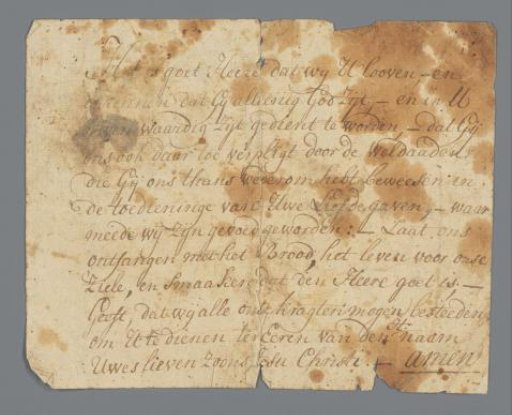 Het is goet Heere dat wy U looven – en
erkennen dat Gy allienig God Zyt, – en in U
waardig Zyt gedient te worden, – dat Gij
ons ook daar toe verpligt door de weldaaden
die Gij ons thans wederom hebt beweesen in
de toedieninge van Uwe Liefde gaven, – waar
meede wij Zyn gevoed geworden: – Laat ons
ontfangen met het Brood, het leven voor onse
Ziele, en smaaken dat den Heere goet is, –
Geeft, dat wy alle onse kragten mogen besteeden,
om U te dienen ter Eeren van den naam
Uwes lieven Zoons Jesu Christi. – amen